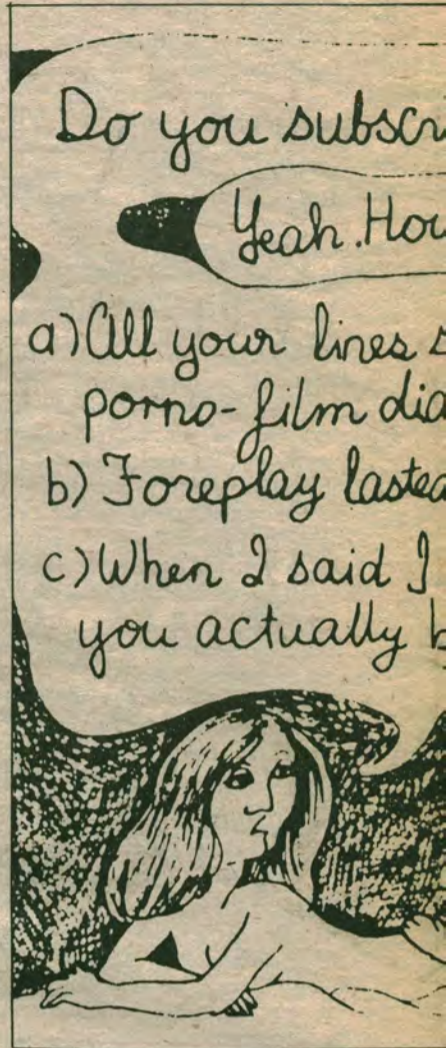 Do you subscr
Yeah. How
a) All your lines s
porno-film dia
b) Foreplay lasted
c) When I said I
you actually b